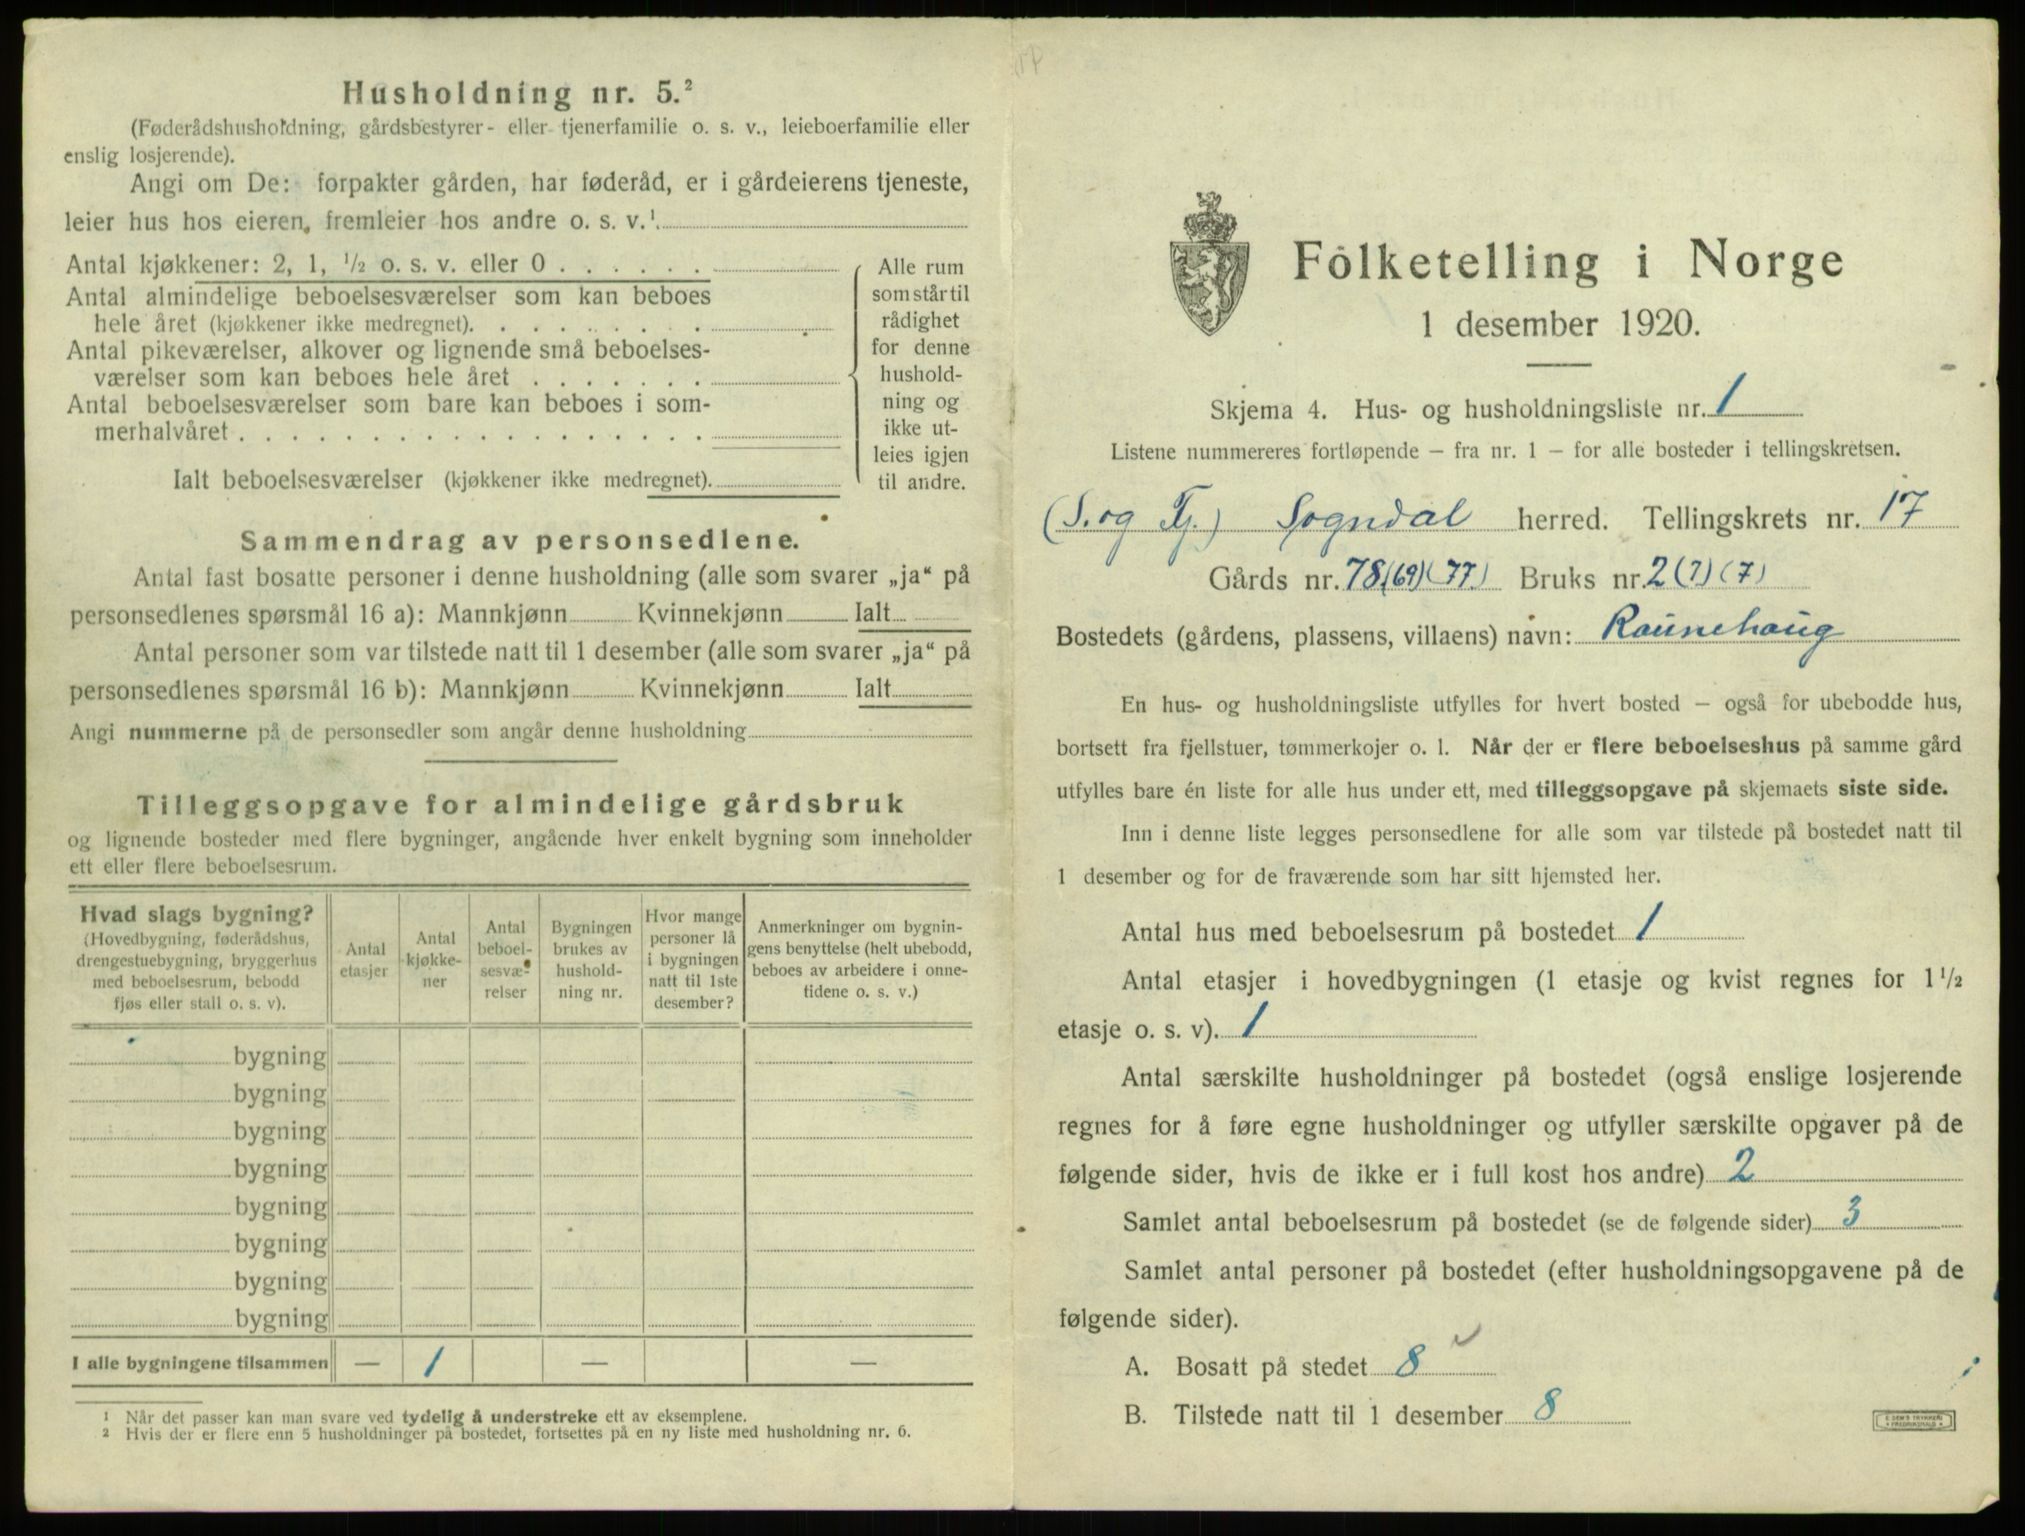 Husholdning nr. 5.²
(Føderådshusholdning, gårdsbestyrer- eller tjenerfamilie o. s. v., leieboerfamilie eller
enslig losjerende).
Angi om De: forpakter gården, har føderåd, er i gårdeierens tjeneste,
leier hus hos eieren, fremleier hos andre o. s. v.¹
Antal kjøkkener: 2, 1, ½ o. s. v. eller 0
Antal almindelige beboelsesværelser som kan beboes
hele året (kjøkkener ikke medregnet).
Antal pikeværelser, alkover og lignende små beboelses-
værelser som kan beboes hele året
Antal beboelsesværelser som bare kan beboes i som-
merhalvåret
Ialt beboelsesværelser (kjøkkener ikke medregnet).
Alle rum
som står til
rådighet
for denne
hushold-
ning og
ikke ut-
leies igjen
til andre.
Sammendrag av personsedlene.
Antal fast bosatte personer i denne husholdning (alle som svarer „ja“ på
personsedlenes spørsmål 16 a): Mannkjønn Kvinnekjønn Ialt
Antal personer som var tilstede natt til 1 desember (alle som svarer „ja“ på
personsedlenes spørsmål 16 b): Mannkjønn Kvinnekjønn Ialt
Angi nummerne på de personsedler som angår denne husholdning
Tilleggsopgave for almindelige gårdsbruk
og lignende bosteder med flere bygninger, angående hver enkelt bygning som inneholder
ett eller flere beboelsesrum.
Hvad slags bygning?
(Hovedbygning, føderådshus,
drengestuebygning, bryggerhus
med beboelsesrum, bebodd
fjøs eller stall o. s. v).
Antal
etasjer
Antal
kjøkke-
ner
Antal
beboel-
sesvæ-
relser
Bygningen
brukes av
hushold-
ning nr.
Hvor mange
personer lå
i bygningen
natt til 1ste
desember?
Anmerkninger om bygnin-
gens benyttelse (helt ubebodd,
beboes av arbeidere i onne-
tidene o. s. v.)
bygning
bygning
bygning
bygning
bygning
bygning
bygning
bygning
I alle bygningene tilsammen — 1 — —
¹ Når det passer kan man svare ved tydelig å understreke ett av eksemplene.
² Hvis der er flere enn 5 husholdninger på bostedet, fortsettes på en ny liste med husholdning nr. 6.
Folketelling i Norge
1 desember 1920.
Skjema 4. Hus- og husholdningsliste nr. 1
Listene nummereres fortløpende – fra nr. 1 – for alle bosteder i tellingskretsen.
(S. og Fj.) Sogndal herred. Tellingskrets nr. 17
Gårds nr. 78 (69) (77) Bruks nr. 2 (7) (7)
Bostedets (gårdens, plassens, villaens) navn: Raunehaug
En hus- og husholdningsliste utfylles for hvert bosted – også for ubebodde hus,
bortsett fra fjellstuer, tømmerkojer o. l. Når der er flere beboelseshus på samme gård
utfylles bare én liste for alle hus under ett, med tilleggsopgave på skjemaets siste side.
Inn i denne liste legges personsedlene for alle som var tilstede på bostedet natt til
1 desember og for de fraværende som har sitt hjemsted her.
Antal hus med beboelsesrum på bostedet 1
Antal etasjer i hovedbygningen (1 etasje og kvist regnes for 1 ½
etasje o. s. v). 1
Antal særskilte husholdninger på bostedet (også enslige losjerende
regnes for å føre egne husholdninger og utfyller særskilte opgaver på de
følgende sider, hvis de ikke er i full kost hos andre) 2
Samlet antal beboelsesrum på bostedet (se de følgende sider) 3
Samlet antal personer på bostedet (efter husholdningsopgavene på de
følgende sider).
A. Bosatt på stedet 8 ✓
B. Tilstede natt til 1 desember 8